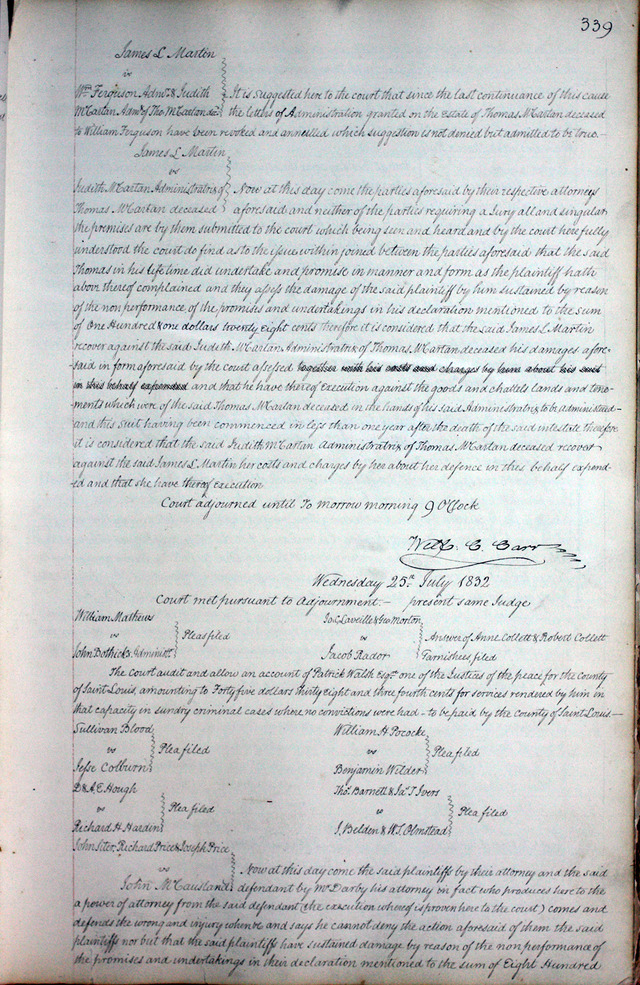 339
James L Martin
vs
Wm Ferguson Admr & Judith
McCartan Admx of Tho. McCartan decd
It is suggested here to the court that since the last continuance of this cause
the letters of Administration granted on the estate of Thomas McCartan deceased
to William Ferguson have been revoked and annulled which suggestion is not denied but admitted to be true.
James L Martin
vs
Judith McCartan Administratrix of
Thomas McCartan deceased
Now at this day come the parties aforesaid by their respective attorneys
aforesaid and neither of the parties requiring a Jury all and singular
the premises are by them submitted to the court which being seen and heard and by the court here fully
understood the court do find as to the issue within joined between the parties aforesaid that the said
Thomas in his life time did undertake and promise in manner and form as the plaintiff hath
above thereof complained and they assess the damage of the said plaintiff by him sustained by reason
of the non performance of the promises and undertakings in his declaration mentioned to the sum
of One Hundred & one dollars twenty eight cents therefore it is considered that the said James L Martin
recover against the said Judith McCartan Administratrix of Thomas McCartan deceased his damages afore-
said in form aforesaid by the court assessed together with his costs and charges by him about his suit
in this behalf expended and that he have thereof execution against the goods and chattels lands and tene-
ments which were of the said Thomas McCartan deceased in the hands of his said Administratrix to be administered
and this suit having been commenced in less than one year after the death of the said intestate therefore
it is considered that the said Judith McCartan Administratrix of Thomas McCartan deceased recover
against the said James L Martin her costs and charges by her about her defence in this behalf expend-
ed and that she have thereof execution
Court adjourned until To morrow morning 9 O'Clock
Wm. C. Carr
Wednesday 25th July 1832
Court met pursuant to Adjournment.— present same Judge
William Mathews
vs
John Bothick's Administr.
Pleas filed
Jac. Laveille & Geo Morton
vs
Jacob Rador
Answer of Anne Collett & Robert Collett
Garnishees, filed
The Court audit and allow an account of Patrick Walsh Esqr. one of the Justices of the peace for the County
of Saint Louis, amounting to Forty five dollars thirty eight and three fourth cents for services rendered by him in
that capacity in sundry criminal cases where no convictions were had - to be paid by the County of Saint Louis.—
Sullivan Blood
vs
Jesse Colburn
Plea filed
William H. Pococke
vs
Benjamin Wilder
Plea filed
D & A. E. Hough
vs
Richard H. Harden
Plea filed
Tho. Barnett & Jas. T Ivers
vs
J. Belden & W. T. Olmstead
Plea filed
John Siter, Richard Price & Joseph Price
vs
John McCausland
Now at this day come the said plaintiffs by their attorney and the said
defendant by Mr Darby his attorney in fact who produces here to the
a power of attorney from the said defendant (the execution whereof is proven here to the court) comes and
defends the wrong and injury when &c and says he cannot deny the action aforesaid of them the said
plaintiffs nor but that the said plaintiffs have sustained damage by reason of the non performance of
the promises and undertakings in their declaration mentioned to the sum of Eight Hundred